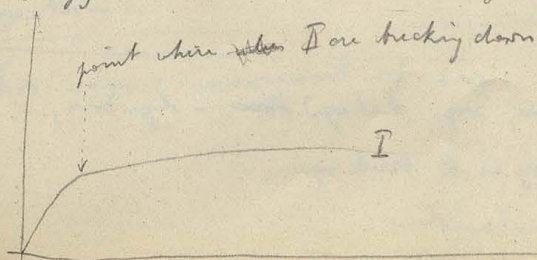 point where II are breaking down
I